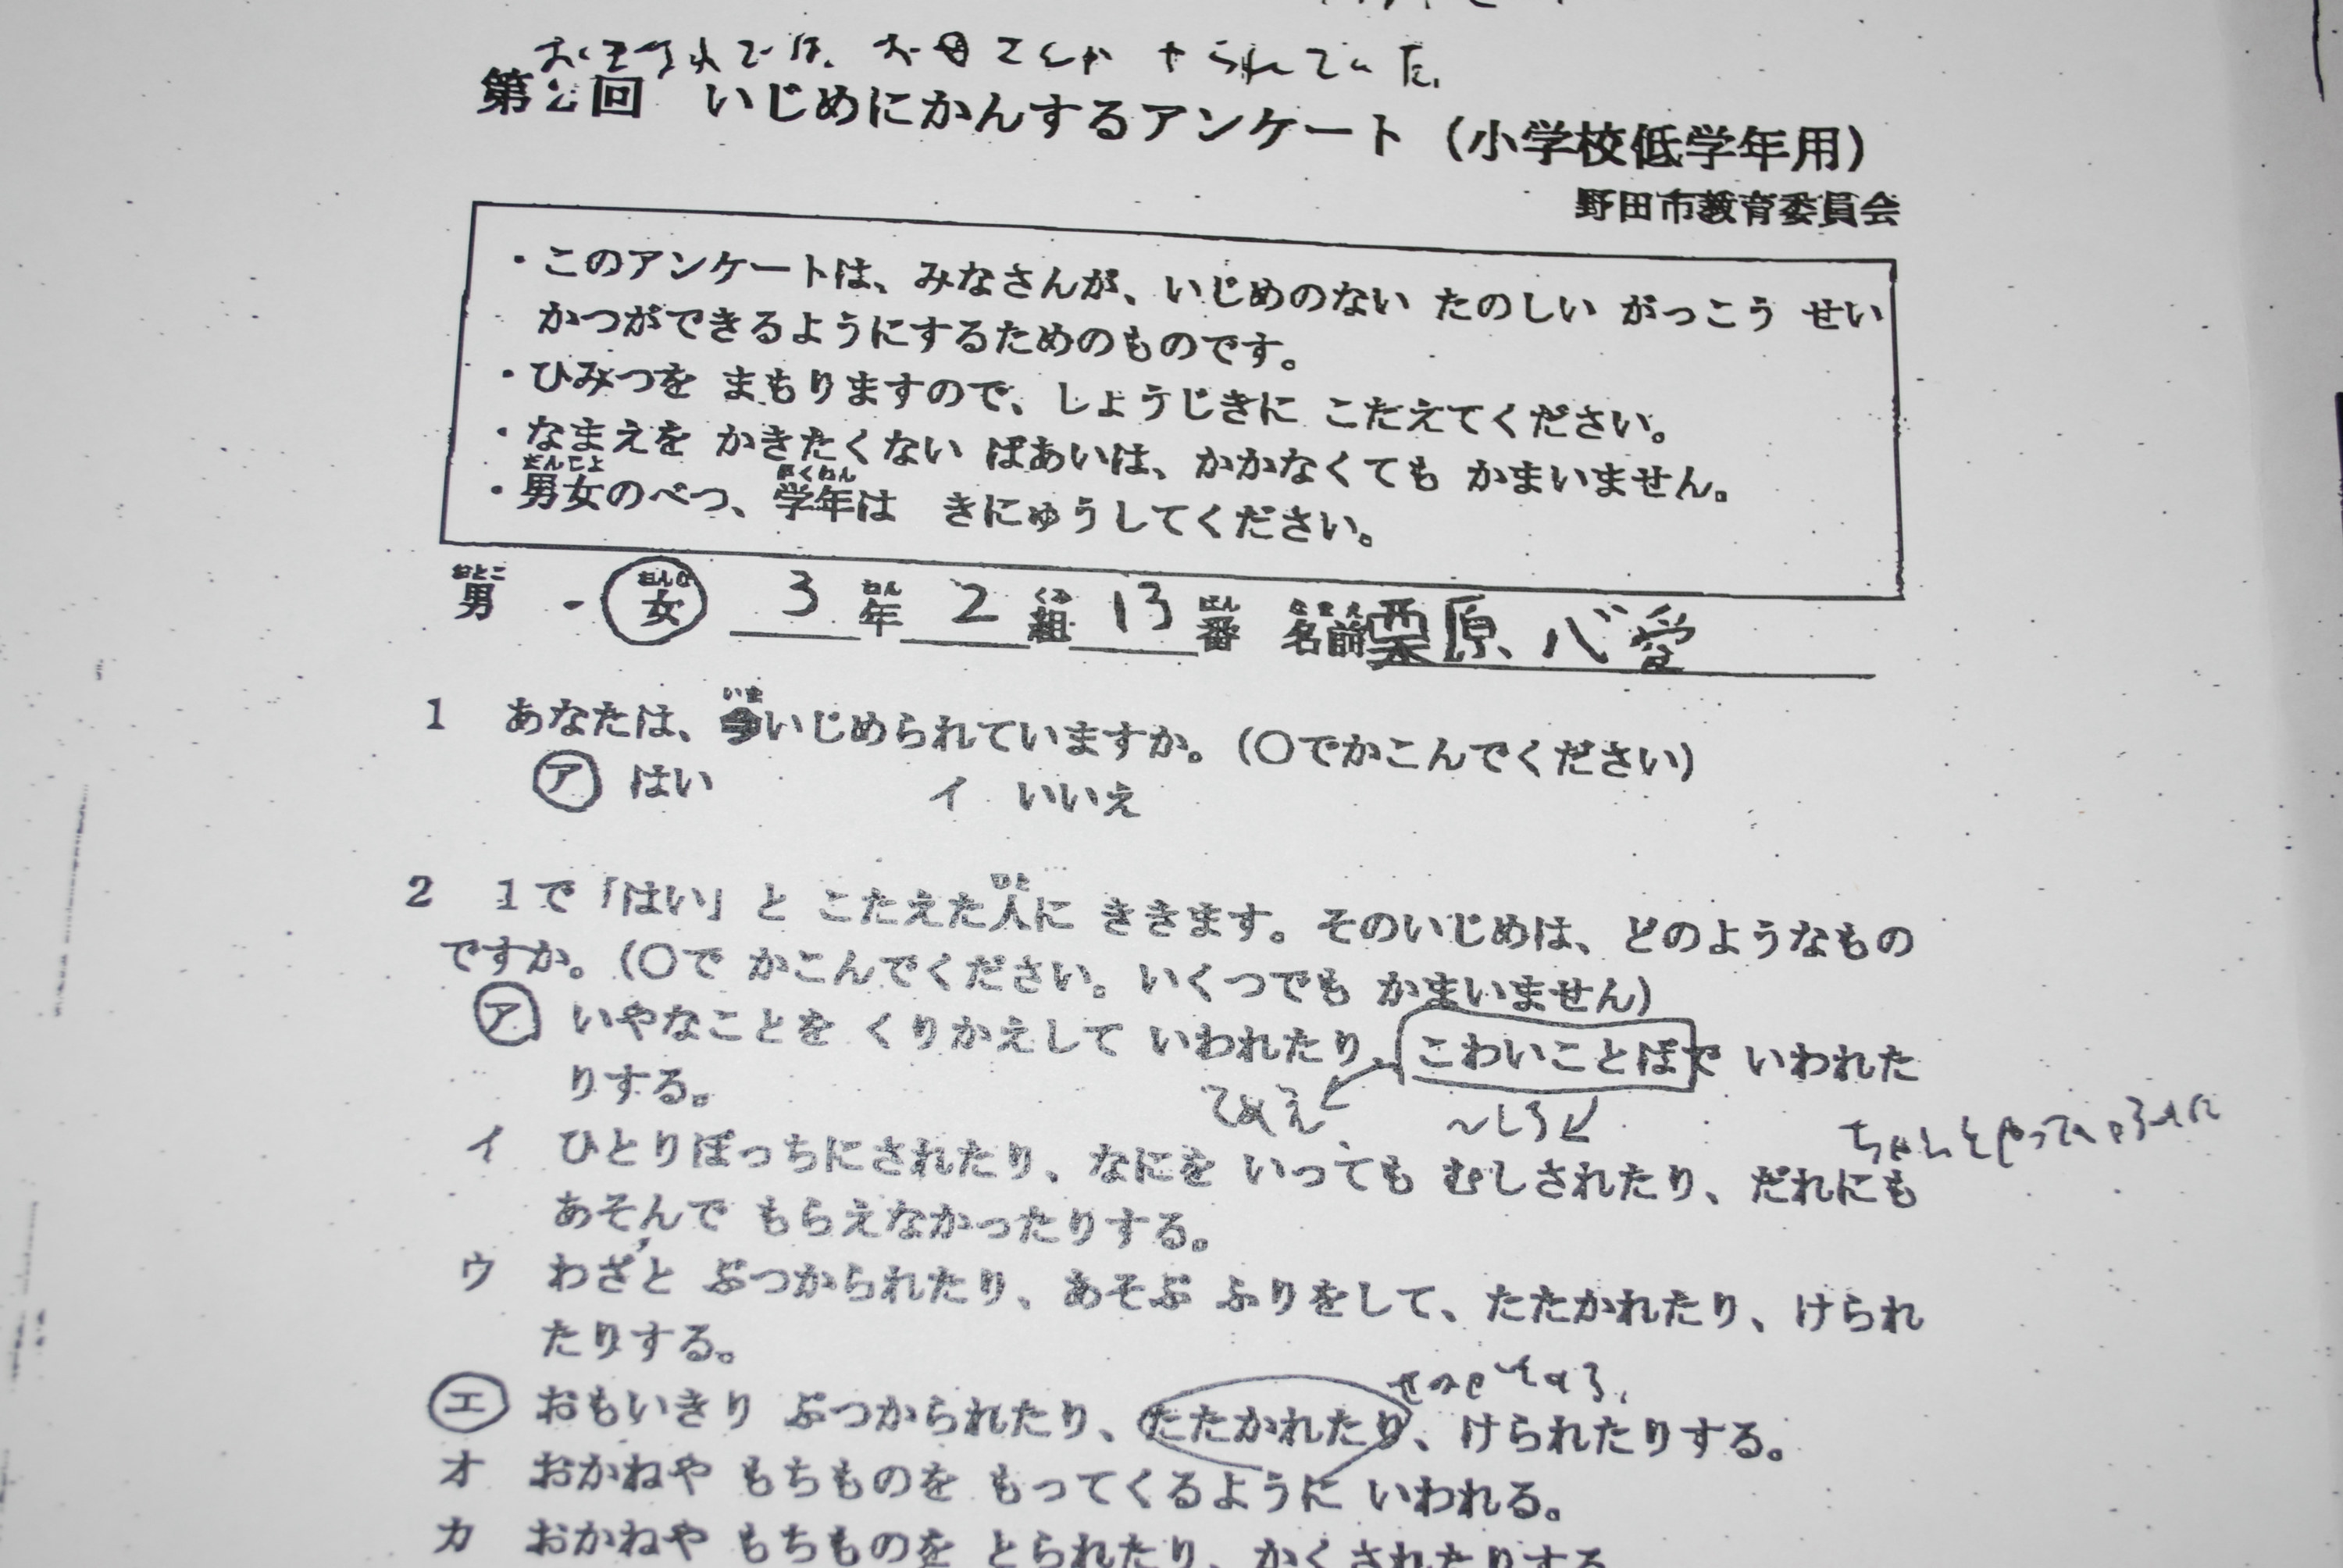 お母さんがやられていた。
第2回 いじめにかんするアンケート（小学校低学年用）
野田市教育委員会
・このアンケートは、みなさんが、いじめのない たのしい がっこう せい
かつができるようにするためのものです。
・ひみつを まもりますので、しょうじきに こたえてください。
・なまえを かきたくない ばあいは、かかなくても かまいません。
だんじょ がくねん
・男女のべつ、学年は きにゅうしてください。
おとこ おんな ねん くみ ばん なまえ
男 ・ 女 3 年 2 組 13 番 名前 栗原 心愛
いま
1 あなたは、今いじめられていますか。（○でかこんでください）
ア はい イ いいえ
ひと
2 1で「はい」と こたえた人に ききます。そのいじめは、どのようなもの
ですか。（○で かこんでください。いくつでも かまいません）
ア いやなことを くりかえして いわれたり、こわいことばで いわれた
りする。
てめえ ～しろ
イ ひとりぼっちにされたり、なにを いっても むしされたり、だれにも
あそんで もらえなかったりする。
ウ わざと ぶつかられたり、あそぶ ふりをして、たたかれたり、けられ
たりする。
エ おもいきり ぶつかられたり、たたかれたり、けられたりする。
オ おかねや もちものを もってくるように いわれる。
カ おかねや もちものを とられたり、かくされたりする